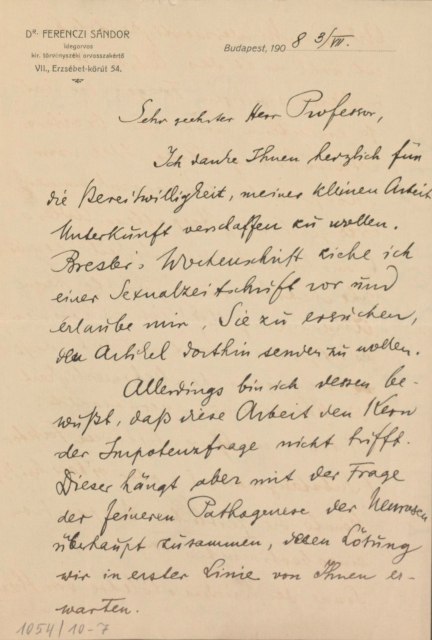 Dr. FERENCZI SÁNDOR
idegorvos
kir. törvényszéki orvosszakértő
VII., Erzsébet-körút 54.
Budapest, 190 8 3/VII.
Sehr geehrter Herr Professor,
Ich danke Ihnen herzlich für
die Bereitwilligkeit, meiner kleinen Arbeit
Unterkunft verschaffen zu wollen.
Bresler's Wochenschrift ziehe ich
einer Sexualzeitschrift vor und
erlaube mir, Sie zu ersuchen,
den Artikel dorthin senden zu wollen.
Allerdings bin ich dessen be-
wußt, daß diese Arbeit den Kern
der Impotenzfrage nicht trifft.
Dieser hängt aber mit der Frage
der feineren Pathogenese der Neurosen
überhaupt zusammen, deren Lösung
wir in erster Linie von Ihnen er-
warten.
1054/10-7